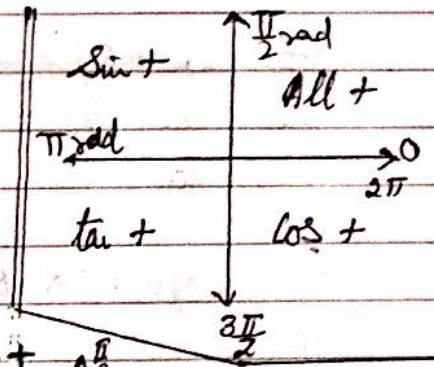 π/2 rad
Sin +
All +
π rad
0
2π
tan +
Cos +
3π/2
+ π/2